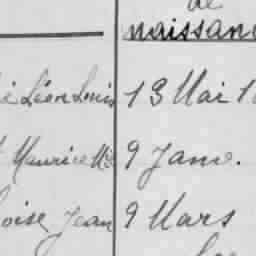 de
naissan
é Léon Louis 13 Mai 1
Maurice 9 Janv.
oise Jean 9 Mars